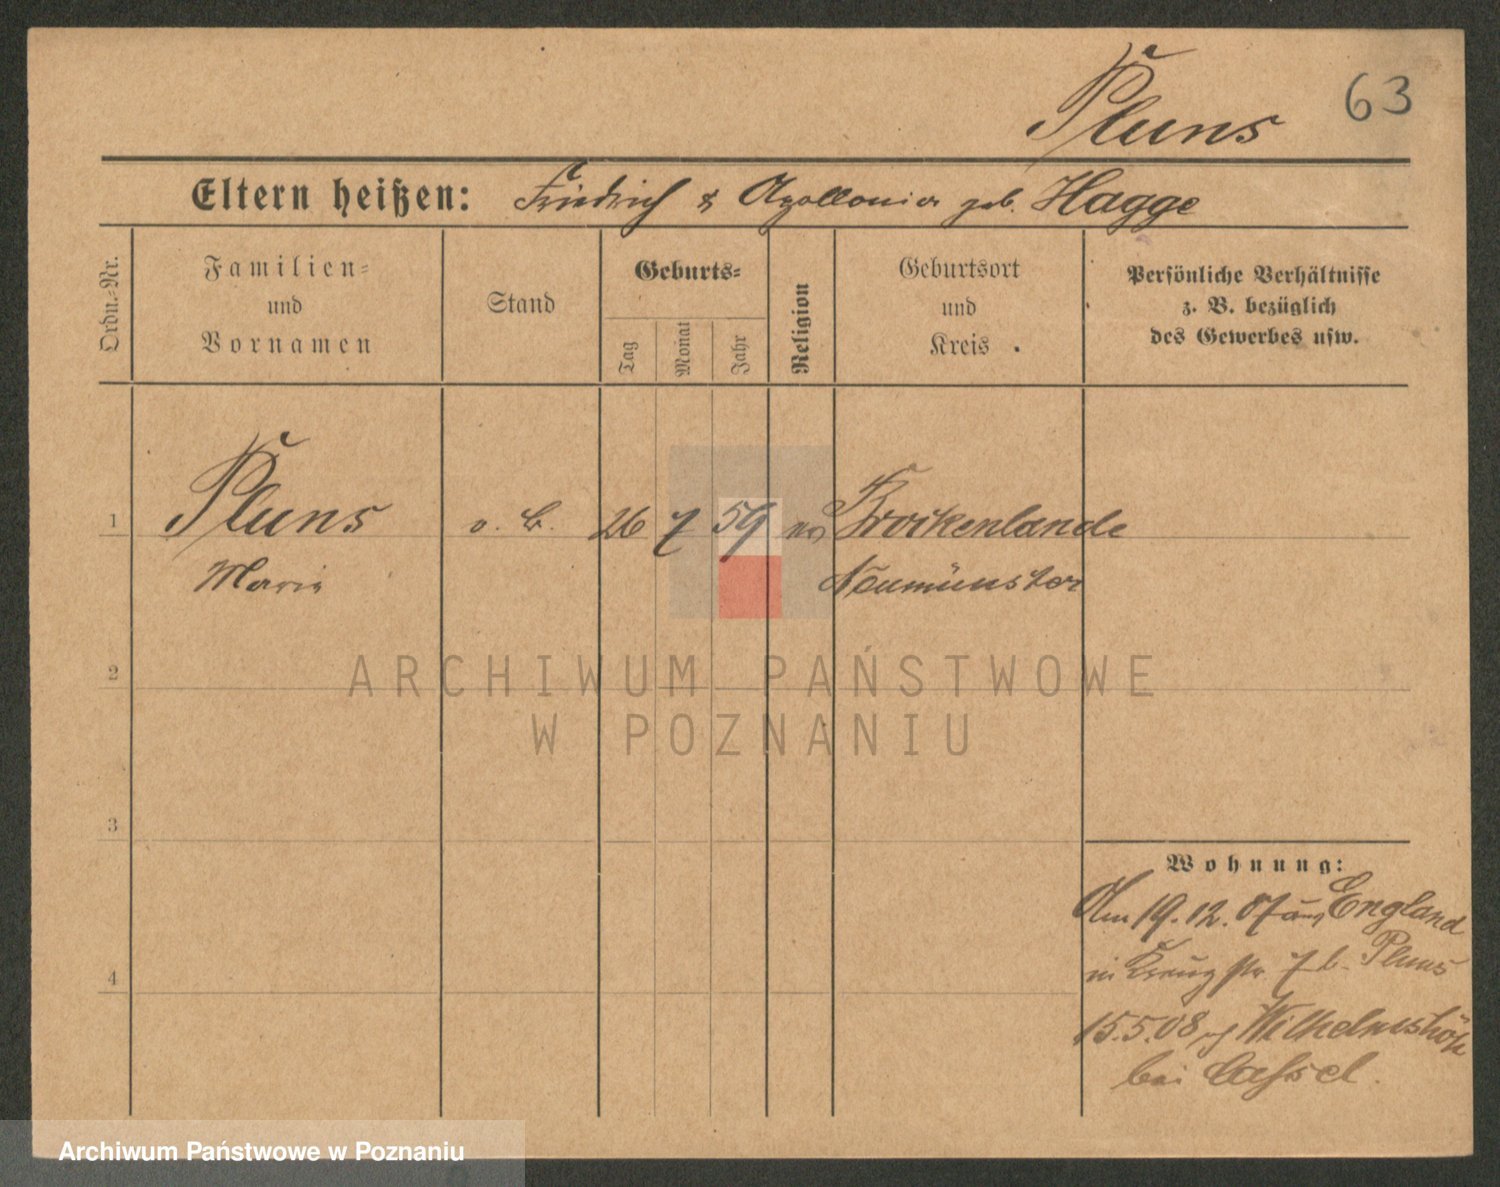 63
Pluns
Eltern heißen: Friedrich & Apollonia geb. Hagge
Ordn.-Nr.
Familien-
und
Vornamen
Stand
Geburts-
Tag
Monat
Jahr
Religion
Geburtsort
und
Kreis
Persönliche Verhältnisse
z. B. bezüglich
des Gewerbes usw.
1 Pluns o. B. 26 7 59 ev Brokenlande
Marie Neumünster
2
ARCHIWUM PAŃSTWOWE
W POZNANIU
3
4
Wohnung:
Am 19.12.07 aus England
in Kreuzstr 7 b. Pluns
15.5.08 Wilhelmshöh
bei Cassel.
Archiwum Państwowe w Poznaniu